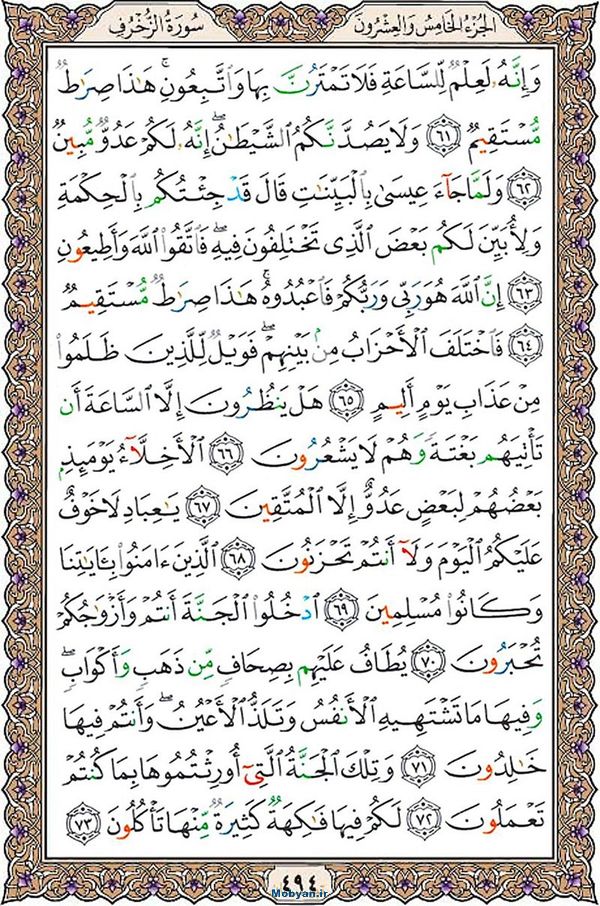 الجزء الخامس والعشرون
سورة الزخرف
وَإِنَّهُۥ لَعِلْمٌ لِّلسَّاعَةِ فَلَا تَمْتَرُنَّ بِهَا وَٱتَّبِعُونِ ۚ هَـٰذَا صِرَٰطٌ
مُّسْتَقِيمٌ ﴿٦١﴾ وَلَا يَصُدَّنَّكُمُ ٱلشَّيْطَـٰنُ ۖ إِنَّهُۥ لَكُمْ عَدُوٌّ مُّبِينٌ
﴿٦٢﴾ وَلَمَّا جَآءَ عِيسَىٰ بِٱلْبَيِّنَـٰتِ قَالَ قَدْ جِئْتُكُم بِٱلْحِكْمَةِ
وَلِأُبَيِّنَ لَكُم بَعْضَ ٱلَّذِى تَخْتَلِفُونَ فِيهِ ۖ فَٱتَّقُوا۟ ٱللَّهَ وَأَطِيعُونِ
﴿٦٣﴾ إِنَّ ٱللَّهَ هُوَ رَبِّى وَرَبُّكُمْ فَٱعْبُدُوهُ ۚ هَـٰذَا صِرَٰطٌ مُّسْتَقِيمٌ
﴿٦٤﴾ فَٱخْتَلَفَ ٱلْأَحْزَابُ مِنۢ بَيْنِهِمْ ۖ فَوَيْلٌ لِّلَّذِينَ ظَلَمُوا۟
مِنْ عَذَابِ يَوْمٍ أَلِيمٍ ﴿٦٥﴾ هَلْ يَنظُرُونَ إِلَّا ٱلسَّاعَةَ أَن
تَأْتِيَهُم بَغْتَةً وَهُمْ لَا يَشْعُرُونَ ﴿٦٦﴾ ٱلْأَخِلَّآءُ يَوْمَئِذٍۭ
بَعْضُهُمْ لِبَعْضٍ عَدُوٌّ إِلَّا ٱلْمُتَّقِينَ ﴿٦٧﴾ يَـٰعِبَادِ لَا خَوْفٌ
عَلَيْكُمُ ٱلْيَوْمَ وَلَآ أَنتُمْ تَحْزَنُونَ ﴿٦٨﴾ ٱلَّذِينَ ءَامَنُوا۟ بِـَٔايَـٰتِنَا
وَكَانُوا۟ مُسْلِمِينَ ﴿٦٩﴾ ٱدْخُلُوا۟ ٱلْجَنَّةَ أَنتُمْ وَأَزْوَٰجُكُمْ
تُحْبَرُونَ ﴿٧٠﴾ يُطَافُ عَلَيْهِم بِصِحَافٍ مِّن ذَهَبٍ وَأَكْوَابٍ ۖ
وَفِيهَا مَا تَشْتَهِيهِ ٱلْأَنفُسُ وَتَلَذُّ ٱلْأَعْيُنُ ۖ وَأَنتُمْ فِيهَا
خَـٰلِدُونَ ﴿٧١﴾ وَتِلْكَ ٱلْجَنَّةُ ٱلَّتِىٓ أُورِثْتُمُوهَا بِمَا كُنتُمْ
تَعْمَلُونَ ﴿٧٢﴾ لَكُمْ فِيهَا فَـٰكِهَةٌ كَثِيرَةٌ مِّنْهَا تَأْكُلُونَ ﴿٧٣﴾
٤٩٤
Mobyan.ir